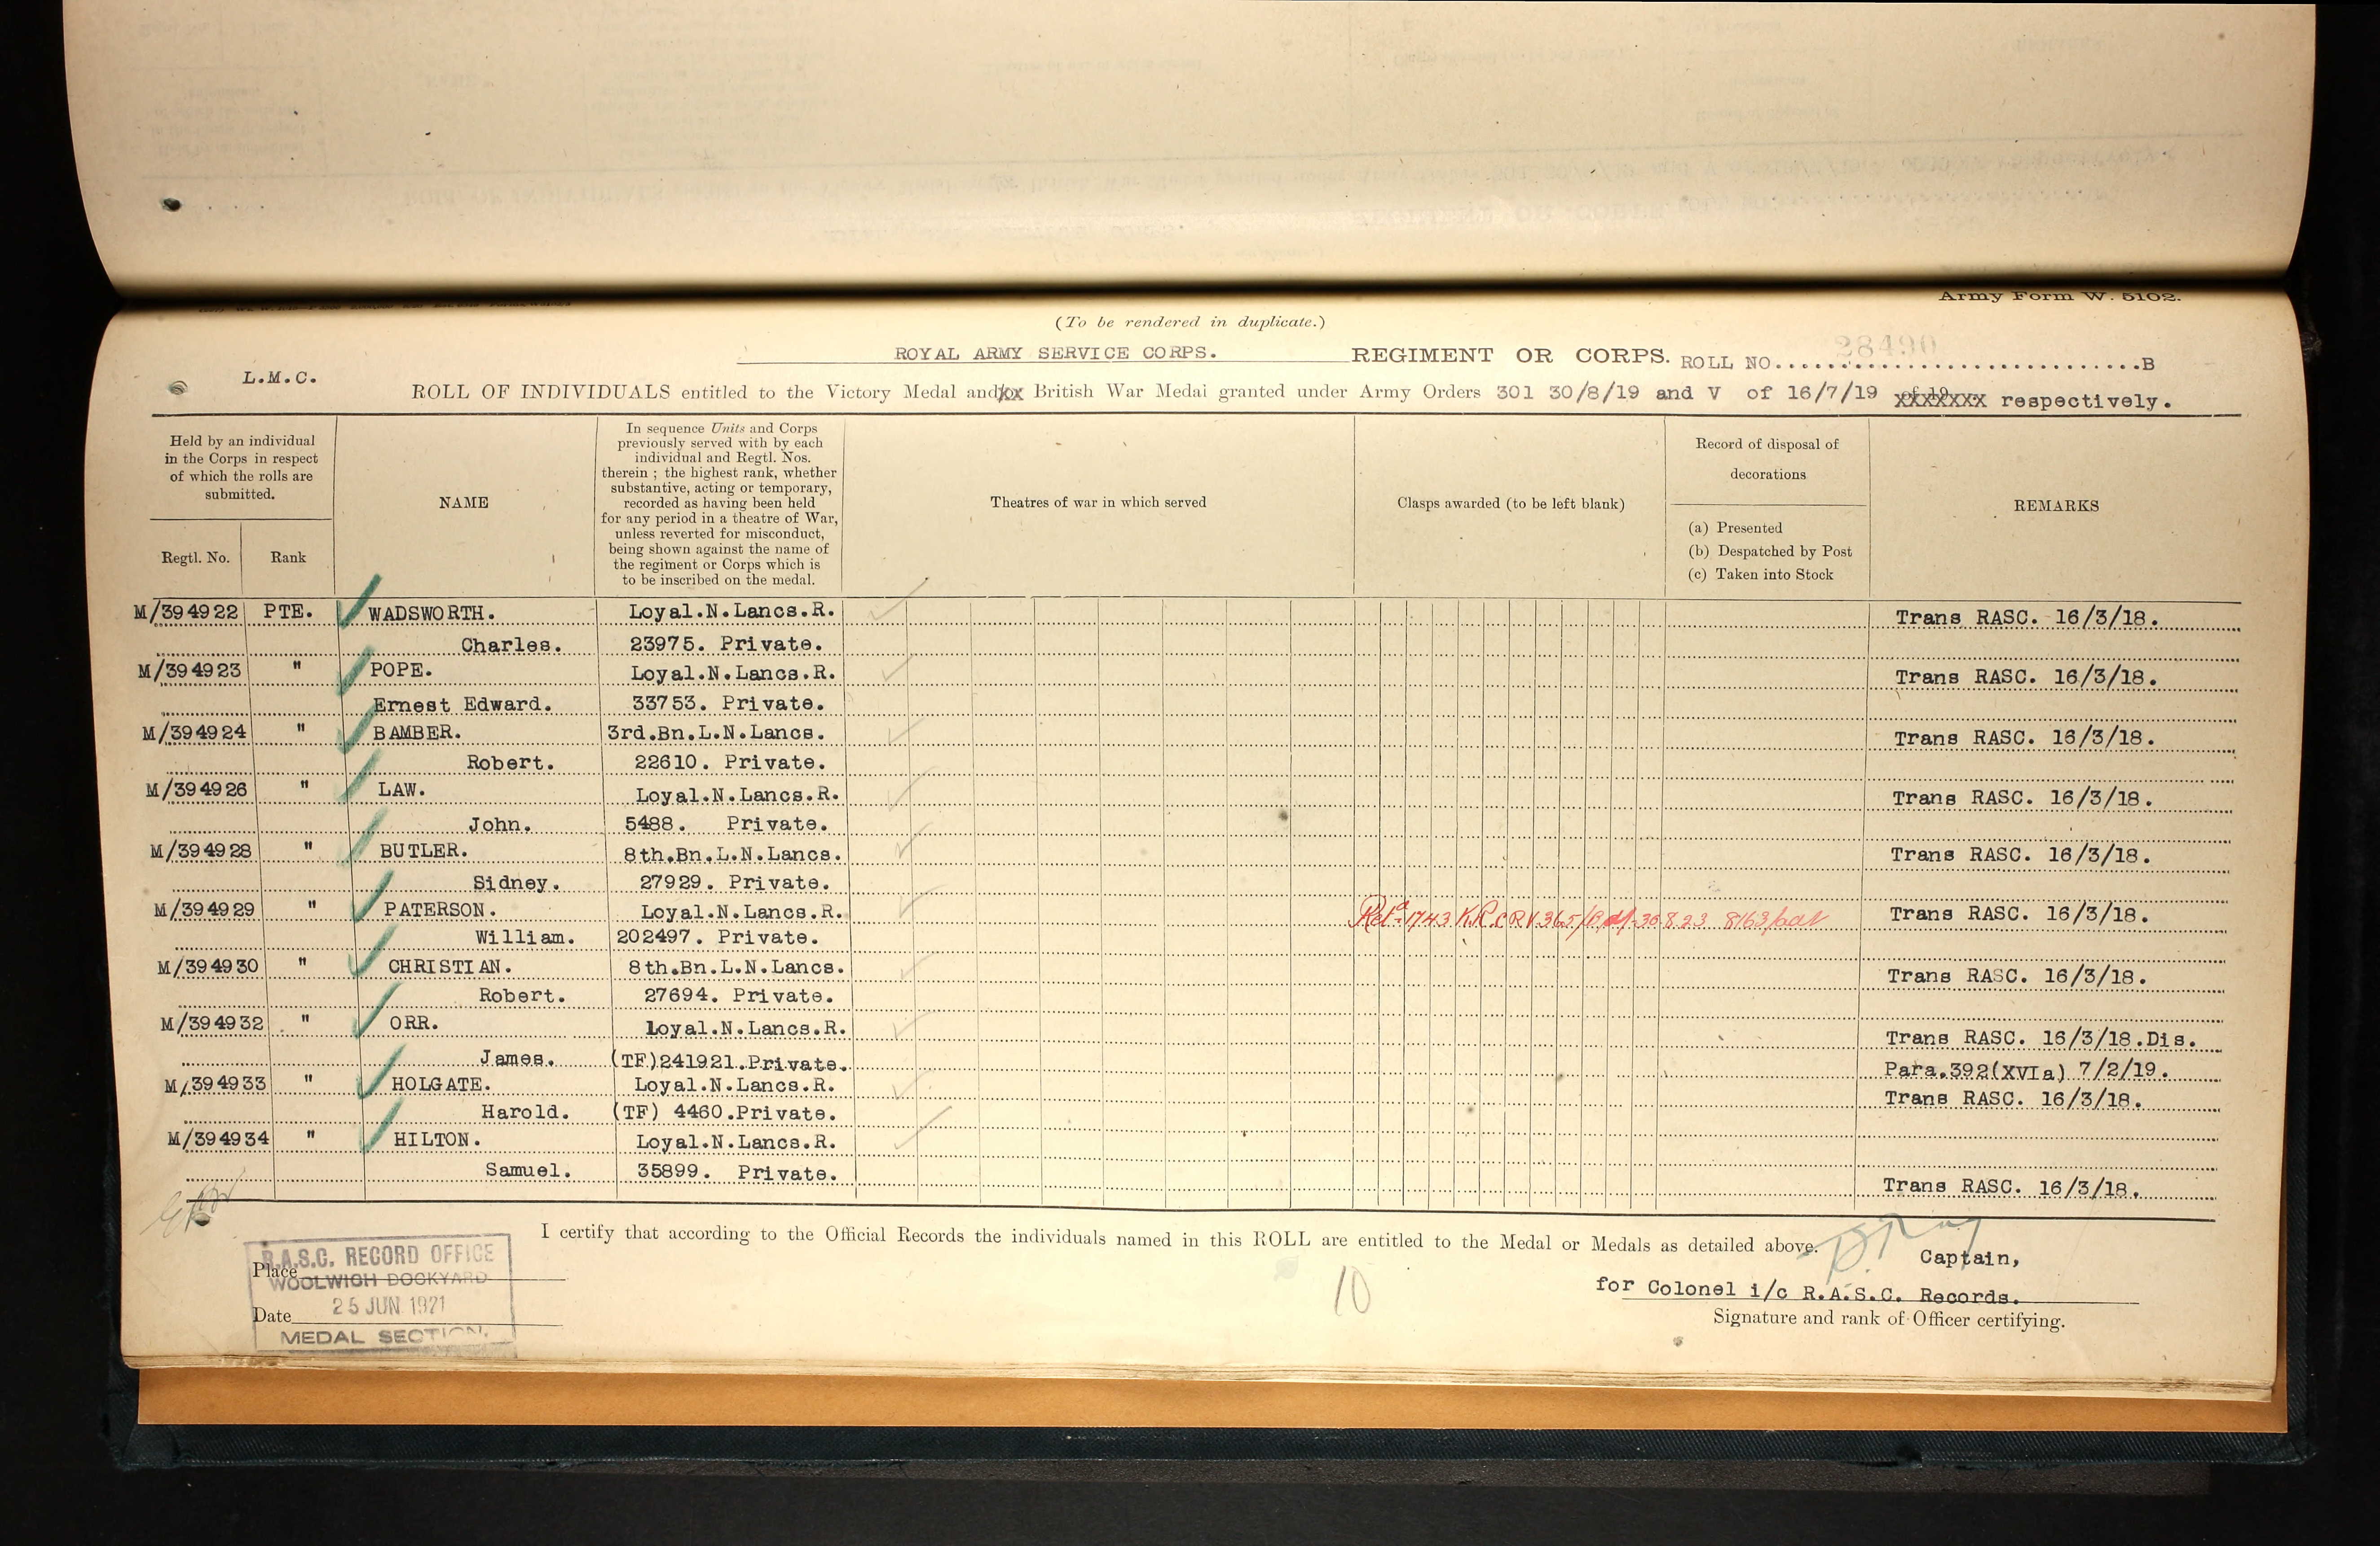 Army Form W. 5102.
(To be rendered in duplicate.)
ROYAL ARMY SERVICE CORPS. REGIMENT OR CORPS. ROLL NO. 28490 B
L.M.C.
ROLL OF INDIVIDUALS entitled to the Victory Medal and/xx British War Medal granted under Army Orders 301 30/8/19 and V of 16/7/19 xxxxxxx respectively.
Held by an individual in the Corps in respect of which the rolls are submitted.
Regtl. No.
Rank
NAME
In sequence Units and Corps previously served with by each individual and Regtl. Nos. therein ; the highest rank, whether substantive, acting or temporary, recorded as having been held for any period in a theatre of War, unless reverted for misconduct, being shown against the name of the regiment or Corps which is to be inscribed on the medal.
Theatres of war in which served
Clasps awarded (to be left blank)
Record of disposal of decorations
(a) Presented
(b) Despatched by Post
(c) Taken into Stock
REMARKS
M/394922 PTE. WADSWORTH. Loyal.N.Lancs.R. Trans RASC. 16/3/18.
Charles. 23975. Private.
M/394923 " POPE. Loyal.N.Lancs.R. Trans RASC. 16/3/18.
Ernest Edward. 33753. Private.
M/394924 " BAMBER. 3rd.Bn.L.N.Lancs. Trans RASC. 16/3/18.
Robert. 22610. Private.
M/394926 " LAW. Loyal.N.Lancs.R. Trans RASC. 16/3/18.
John. 5488. Private.
M/394928 " BUTLER. 8th.Bn.L.N.Lancs. Trans RASC. 16/3/18.
Sidney. 27929. Private.
M/394929 " PATERSON. Loyal.N.Lancs.R. 1743 K.R. Trans RASC. 16/3/18.
William. 202497. Private.
M/394930 " CHRISTIAN. 8th.Bn.L.N.Lancs. Trans RASC. 16/3/18.
Robert. 27694. Private.
M/394932 " ORR. Loyal.N.Lancs.R. Trans RASC. 16/3/18.Dis.
James. (TF)241921.Private. Para.392(XVIa) 7/2/19.
M/394933 " HOLGATE. Loyal.N.Lancs.R. Trans RASC. 16/3/18.
Harold. (TF) 4460.Private.
M/394934 " HILTON. Loyal.N.Lancs.R.
Samuel. 35899. Private. Trans RASC. 16/3/18.
I certify that according to the Official Records the individuals named in this ROLL are entitled to the Medal or Medals as detailed above.
R.A.S.C. RECORD OFFICE
Place
WOOLWICH DOCKYARD
25 JUN 1921
Date
MEDAL SECTION.
10
Captain,
for Colonel i/c R.A.S.C. Records.
Signature and rank of Officer certifying.